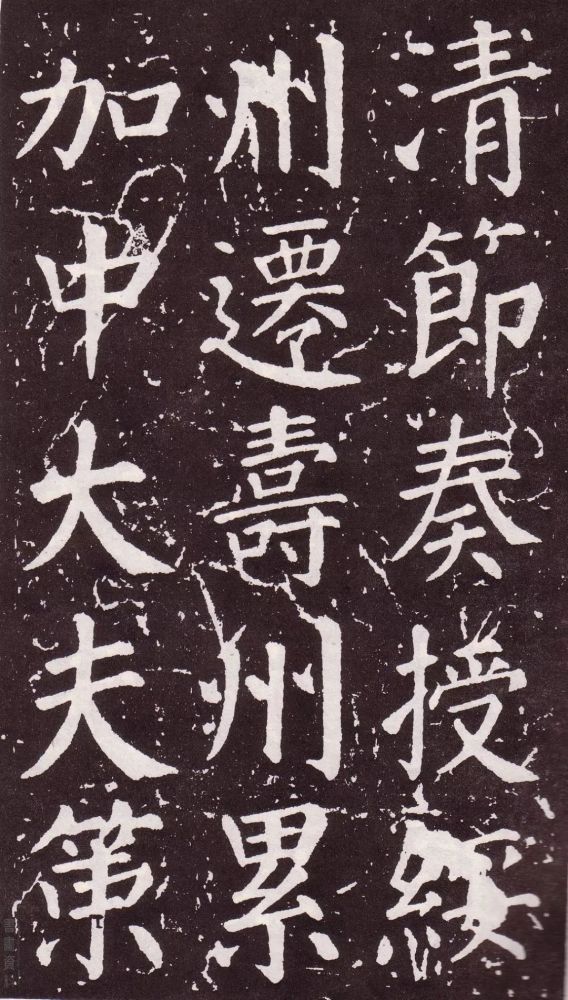 清節奏授綏
州遷壽州累
加中大夫第